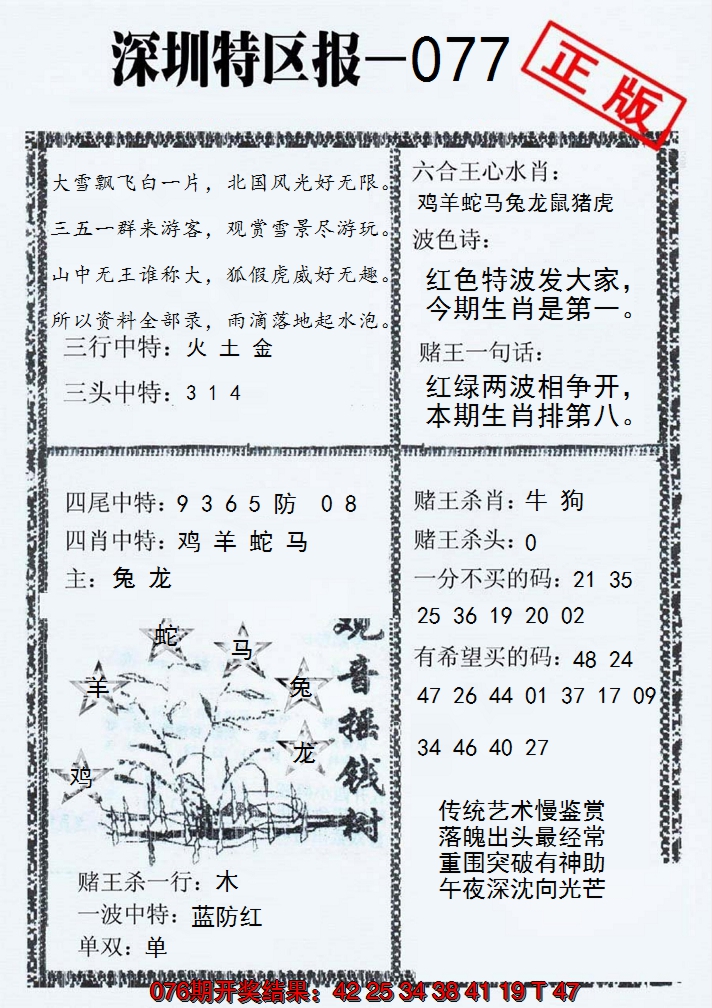 深圳特区报—077
正版
大雪飘飞白一片，北国风光好无限。
三五一群来游客，观赏雪景尽游玩。
山中无王谁称大，狐假虎威好无趣。
所以资料全部录，雨滴落地起水泡。
三行中特：火 土 金
三头中特：3 1 4
六合王心水肖：
鸡羊蛇马兔龙鼠猪虎
波色诗：
红色特波发大家，
今期生肖是第一。
赌王一句话：
红绿两波相争开，
本期生肖排第八。
四尾中特：9 3 6 5 防 0 8
四肖中特：鸡 羊 蛇 马
主：兔 龙
观音摇钱树
蛇
马
羊
兔
龙
鸡
赌王杀一行：木
一波中特：蓝防红
单双：单
赌王杀肖：牛 狗
赌王杀头：0
一分不买的码：21 35
25 36 19 20 02
有希望买的码：48 24
47 26 44 01 37 17 09
34 46 40 27
传统艺术慢鉴赏
落魄出头最经常
重围突破有神助
午夜深沈向光芒
076期开奖结果：42 25 34 38 41 19 T 47